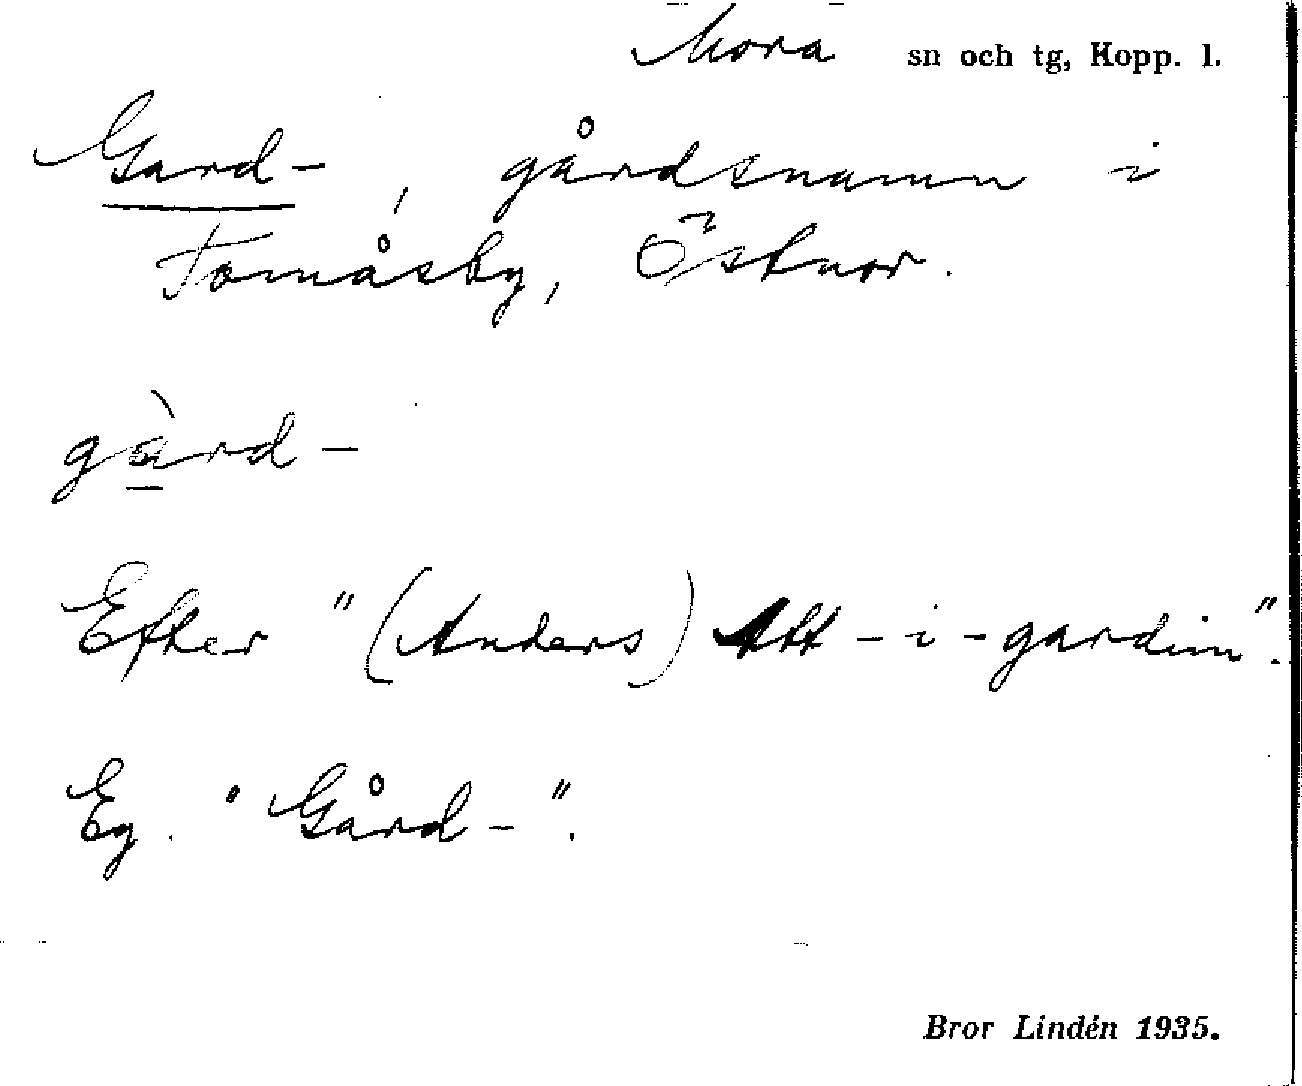 Mora sn och tg, Kopp. l.
Gard-, gårdsnamn i
Tomåsby, Östnor.
gàrd-
Efter "(Anders) Att-i-gardim".
Eg. "Gård-".
Bror Lindén 1935.